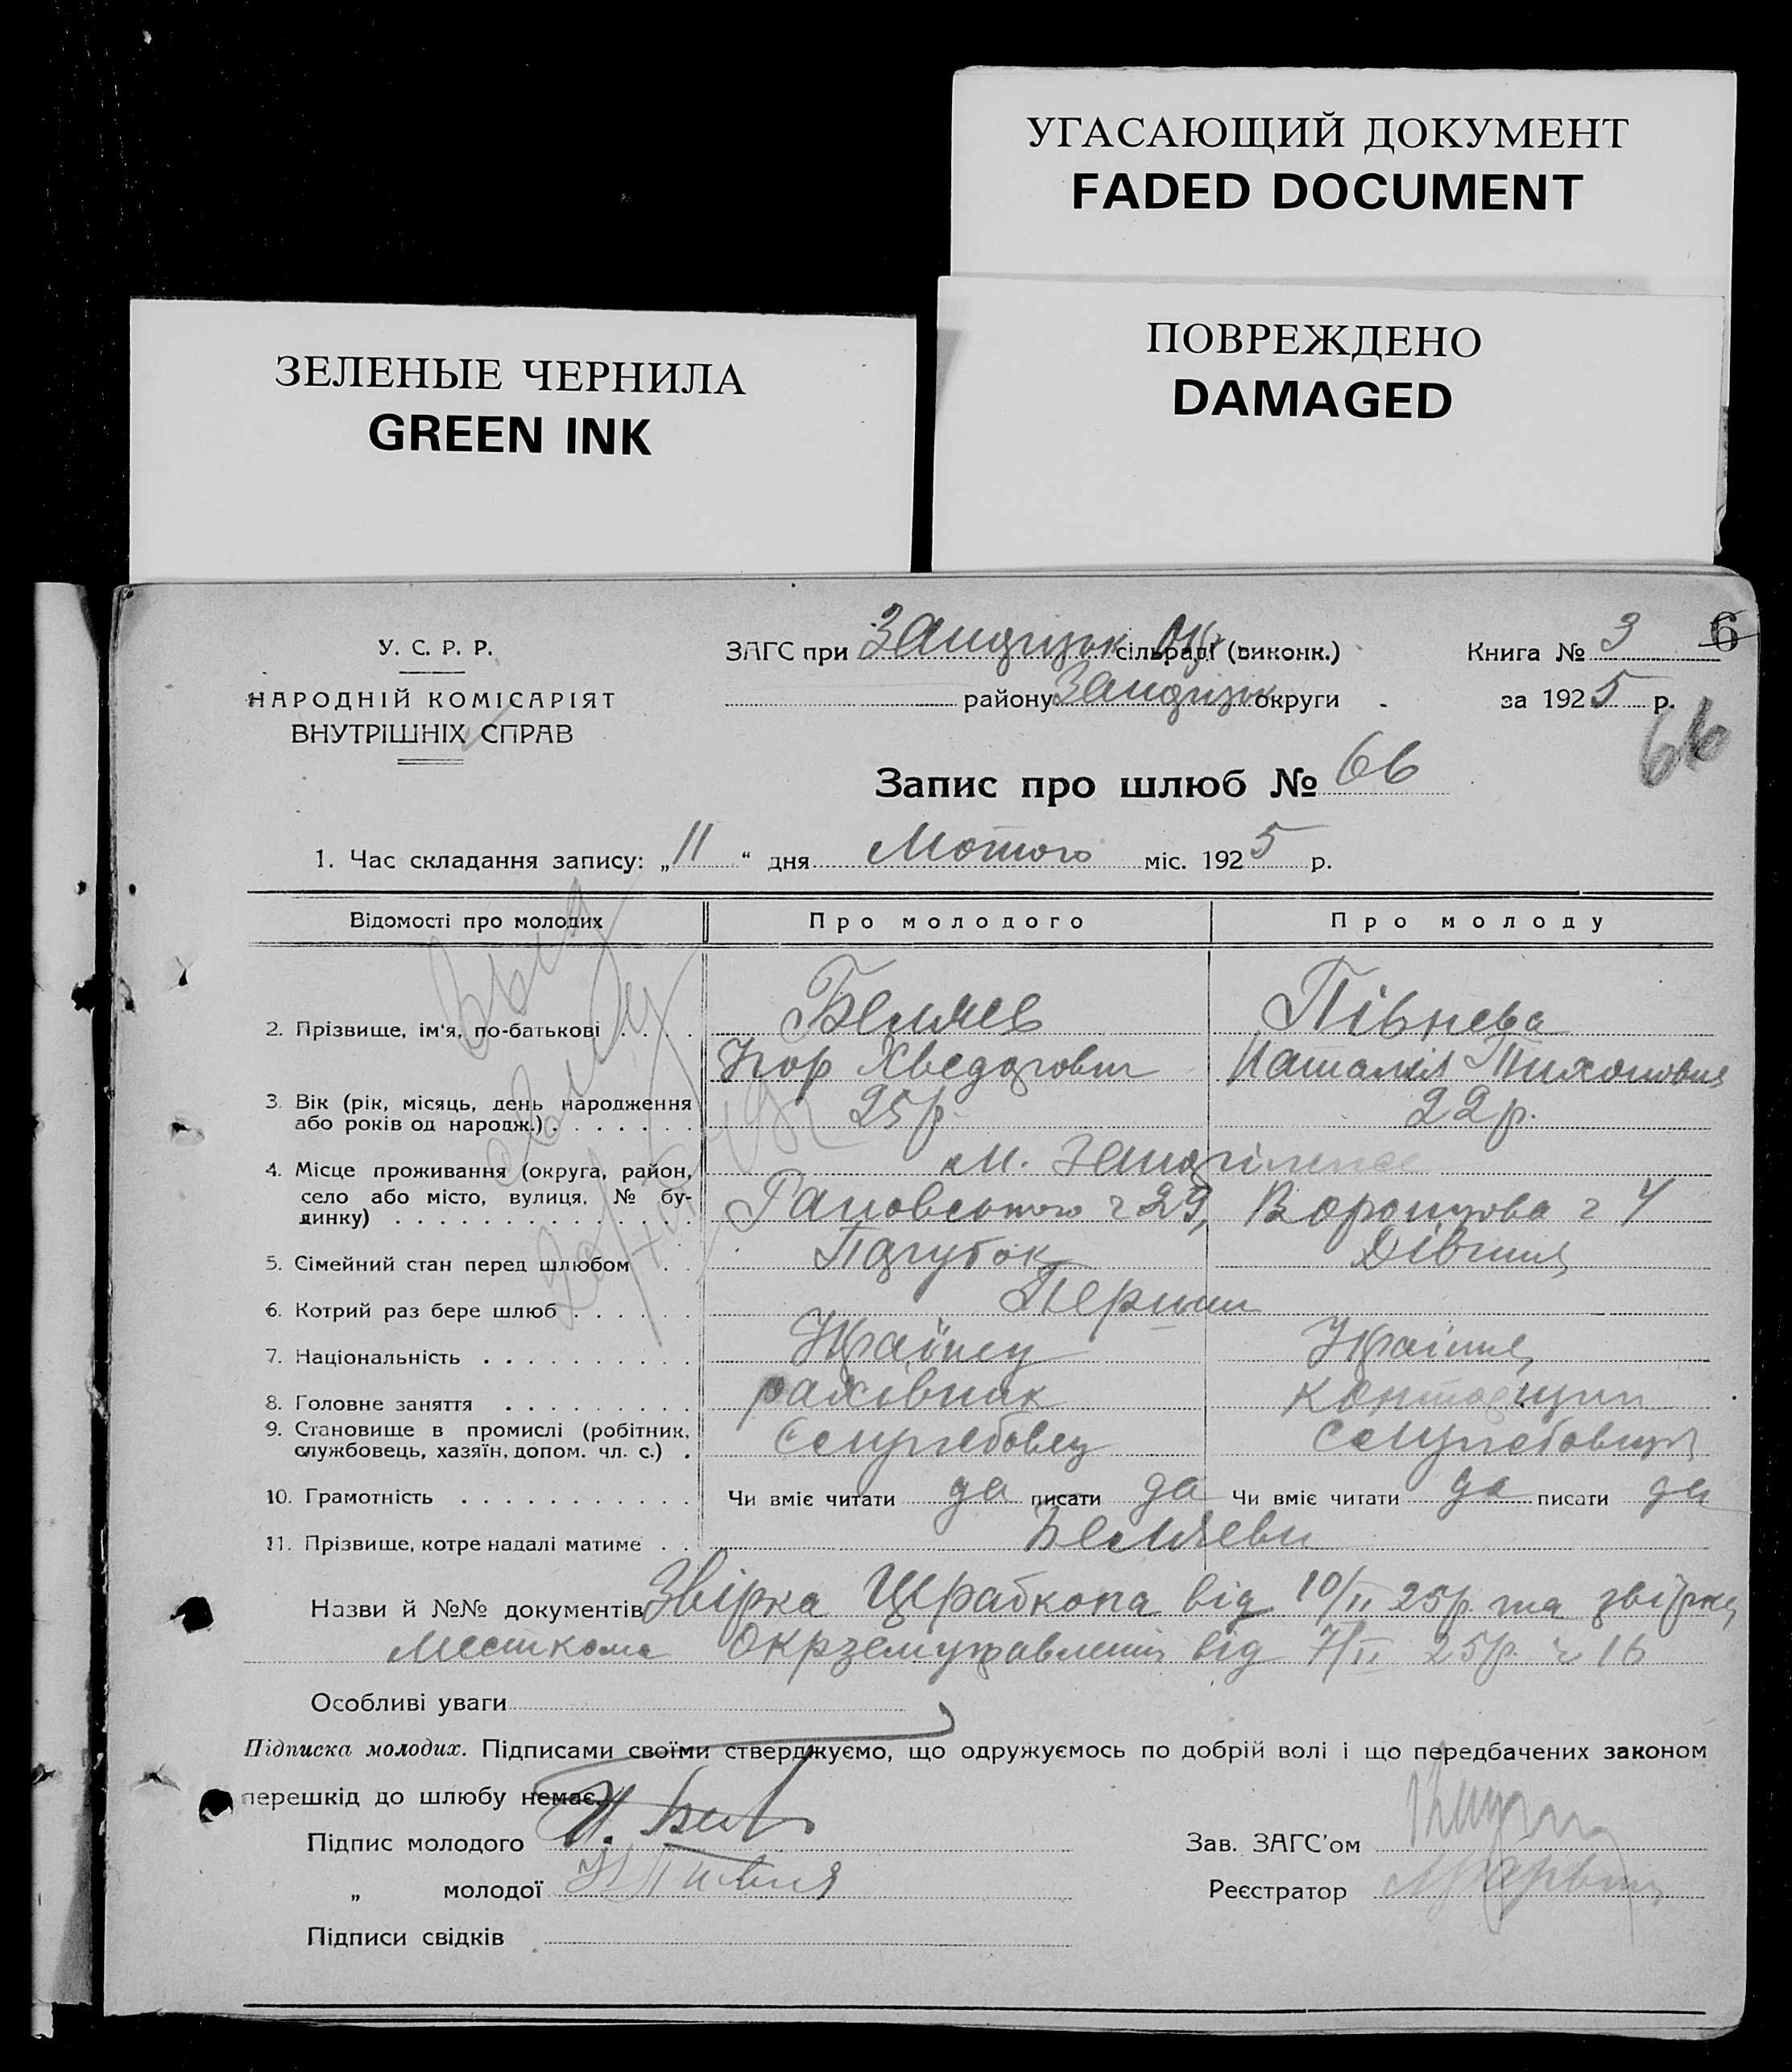 УГАСАЮЩИЙ ДОКУМЕНТ
FADED DOCUMENT
ЗЕЛЕНЫЕ ЧЕРНИЛА
GREEN INK
ПОВРЕЖДЕНО
DAMAGED
У. С. Р. Р.
НАРОДНІЙ КОМІСАРІЯТ
ВНУТРІШНІХ СПРАВ
ЗАГС при сільраді (виконк.)
району округи
Книга № 3
6
за 1925 р.
66
Запис про шлюб № 66
1. Час складання запису: „11“ дня Лютого міс. 1925 р.
Відомості про молодих Про молодого Про молоду
2. Прізвище, ім'я, по-батькові . . . . Беляев Півнева
Ігор Хведорович Наталія Тихоновна
3. Вік (рік, місяць, день народження
або років од народж.) . . . . . . . 25 р. 22 р.
4. Місце проживання (округа, район,
село або місто, вулиця, № бу-
динку) . . . . . . . . . . . . . . м.
ч 29, Воронцова ч 4
5. Сімейний стан перед шлюбом . . Парубок Дівчина
6. Котрий раз бере шлюб . . . . . . Перший
7. Національність . . . . . . . . . . Українец
8. Головне заняття . . . . . . . . . рахівник
9. Становище в промислі (робітник,
службовець, хазяїн, допом. чл. с.) . Службовец Службовця
10. Грамотність . . . . . . . . . . . Чи вміє читати да писати да Чи вміє читати да писати да
11. Прізвище, котре надалі матиме . . Беляеви
Назви й №№ документів Звірка Церабкопа від 10/II 25р. та звірка
Месткома Окрземуправления від 7/II 25р. ч 16
Особливі уваги
Підписка молодих. Підписами своїми стверджуємо, що одружуємось по добрій волі і що передбачених законом
перешкід до шлюбу немає.
Підпис молодого
Зав. ЗАГС'ом
„ молодої
Реєстратор
Підписи свідків